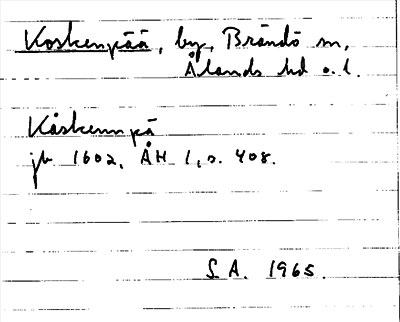 Koskenpää, by, Brändö sn,
Ålands hd o. l.
Kåskennpä
jb 1602, ÅH 1, s. 408.
S A. 1965.